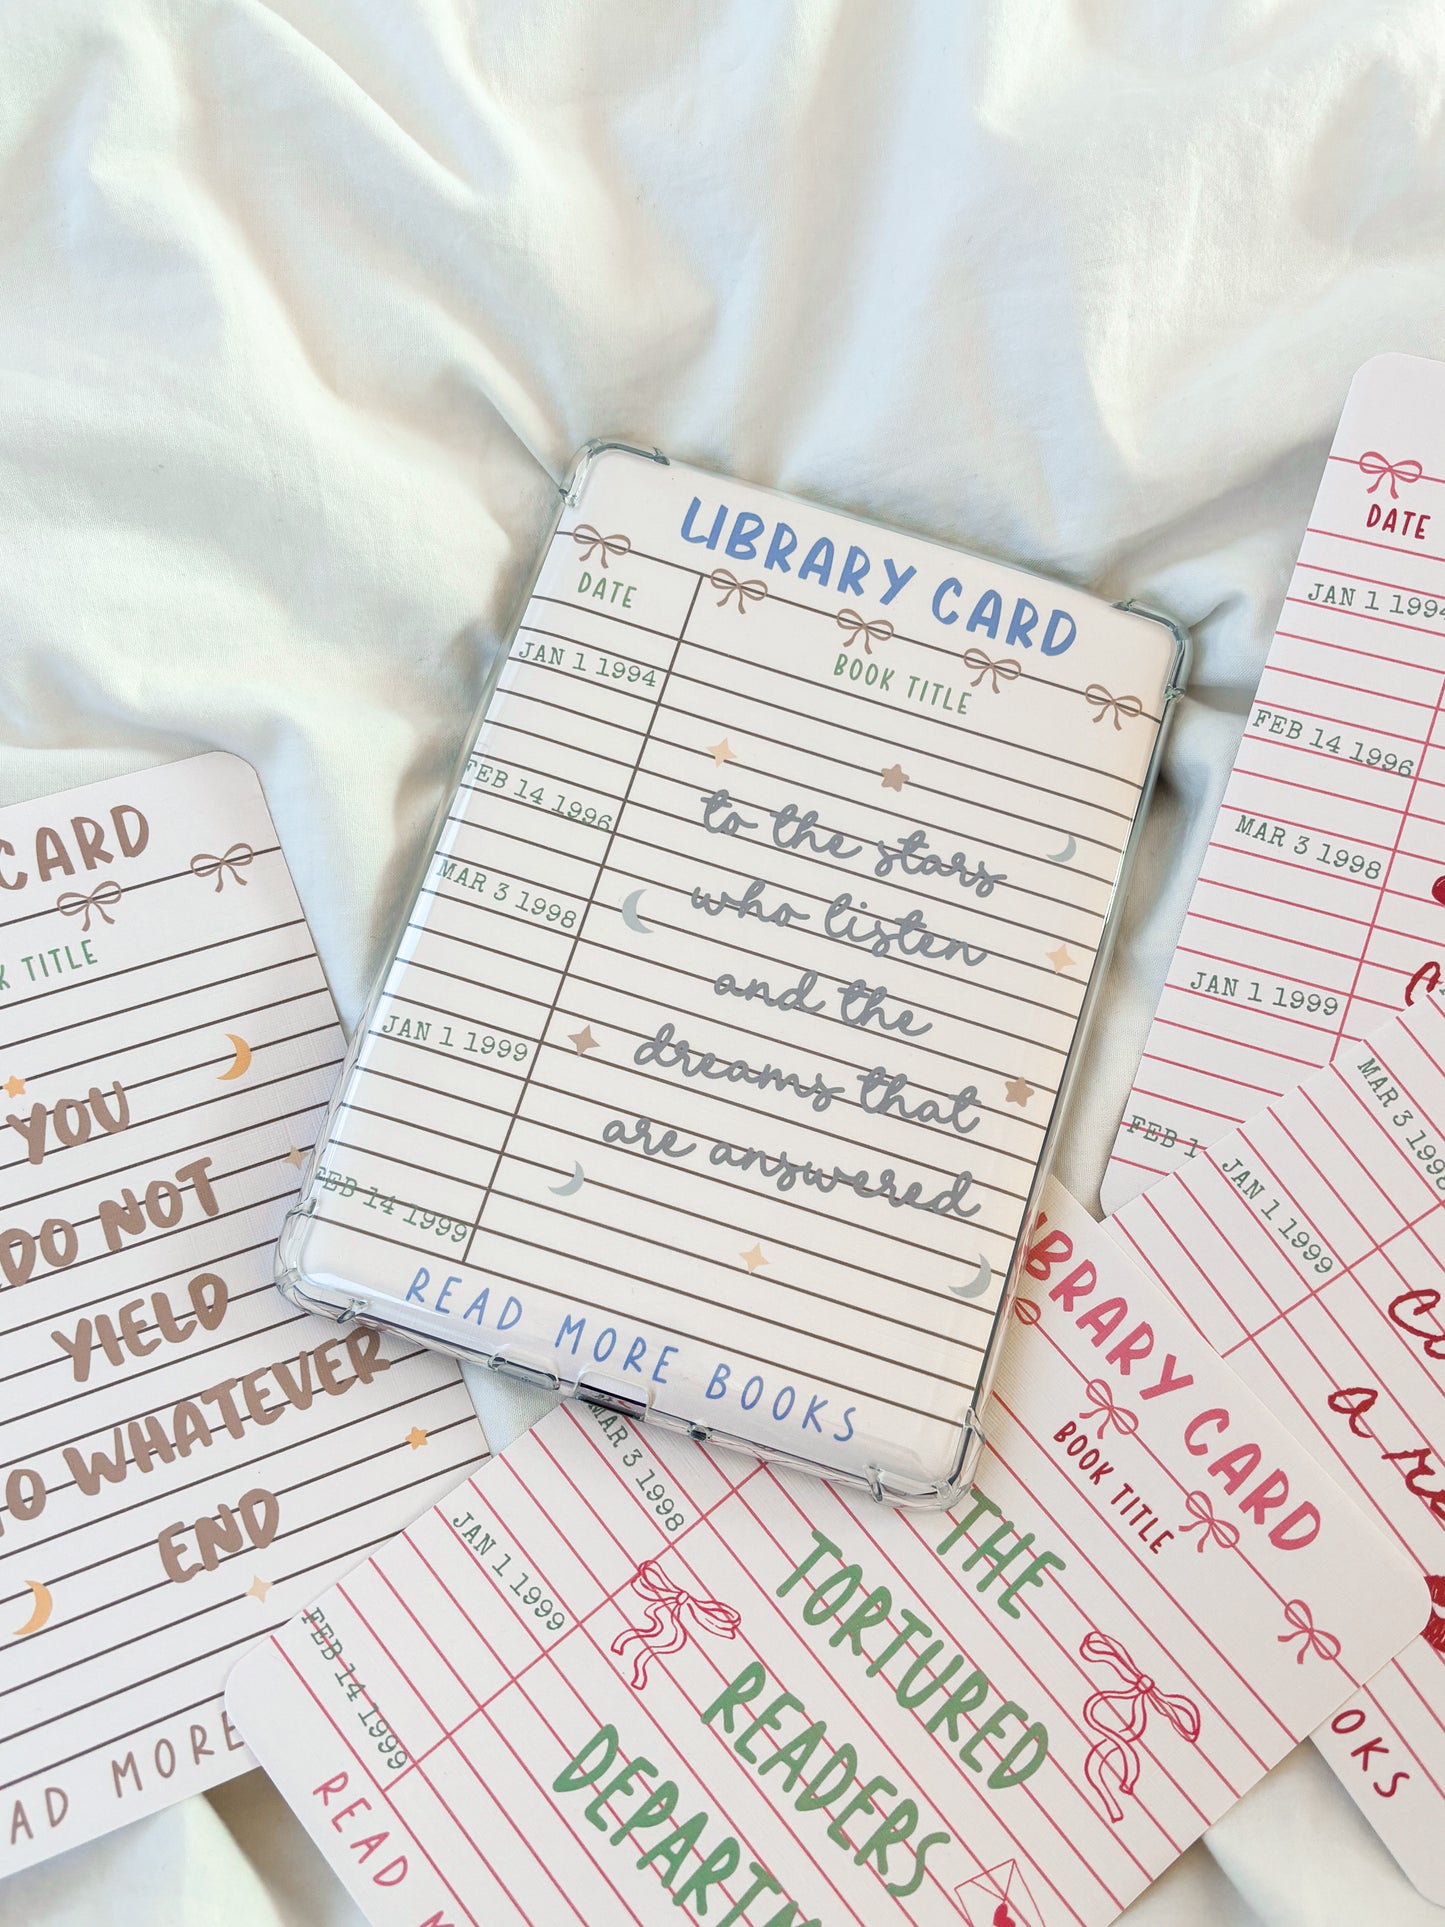 LIBRARY CARD
DATE
BOOK TITLE
JAN 1 1994
FEB 14 1996
MAR 3 1998
JAN 1 1999
FEB 14 1999
to the stars
who listen
and the
dreams that
are answered
READ MORE BOOKS
CARD
TITLE
YOU
DO NOT
YIELD
WHATEVER
END
MORE
DATE
JAN 1 1994
FEB 14 1996
MAR 3 1998
JAN 1 1999
FEB 1
MAR 3 1998
JAN 1 1999
a
OKS
LIBRARY CARD
BOOK TITLE
MAR 3 1998
JAN 1 1999
FEB 14 1999
THE
TORTURED
READERS
DEPARTM
READ M